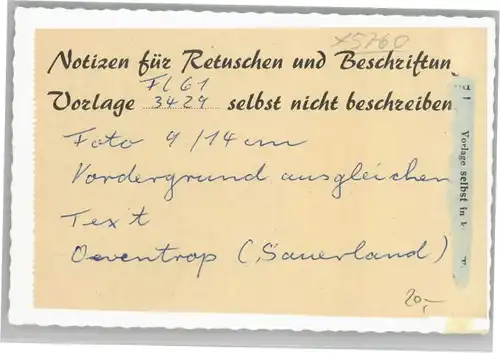 x5760
Notizen für Retuschen und Beschriftun
Fl 61
Vorlage 3429 selbst nicht beschreiben
Foto 9/14 cm
Vordergrund ausgleichen
Text
Oeventrop (Sauerland)
20,-
Vorlage selbst